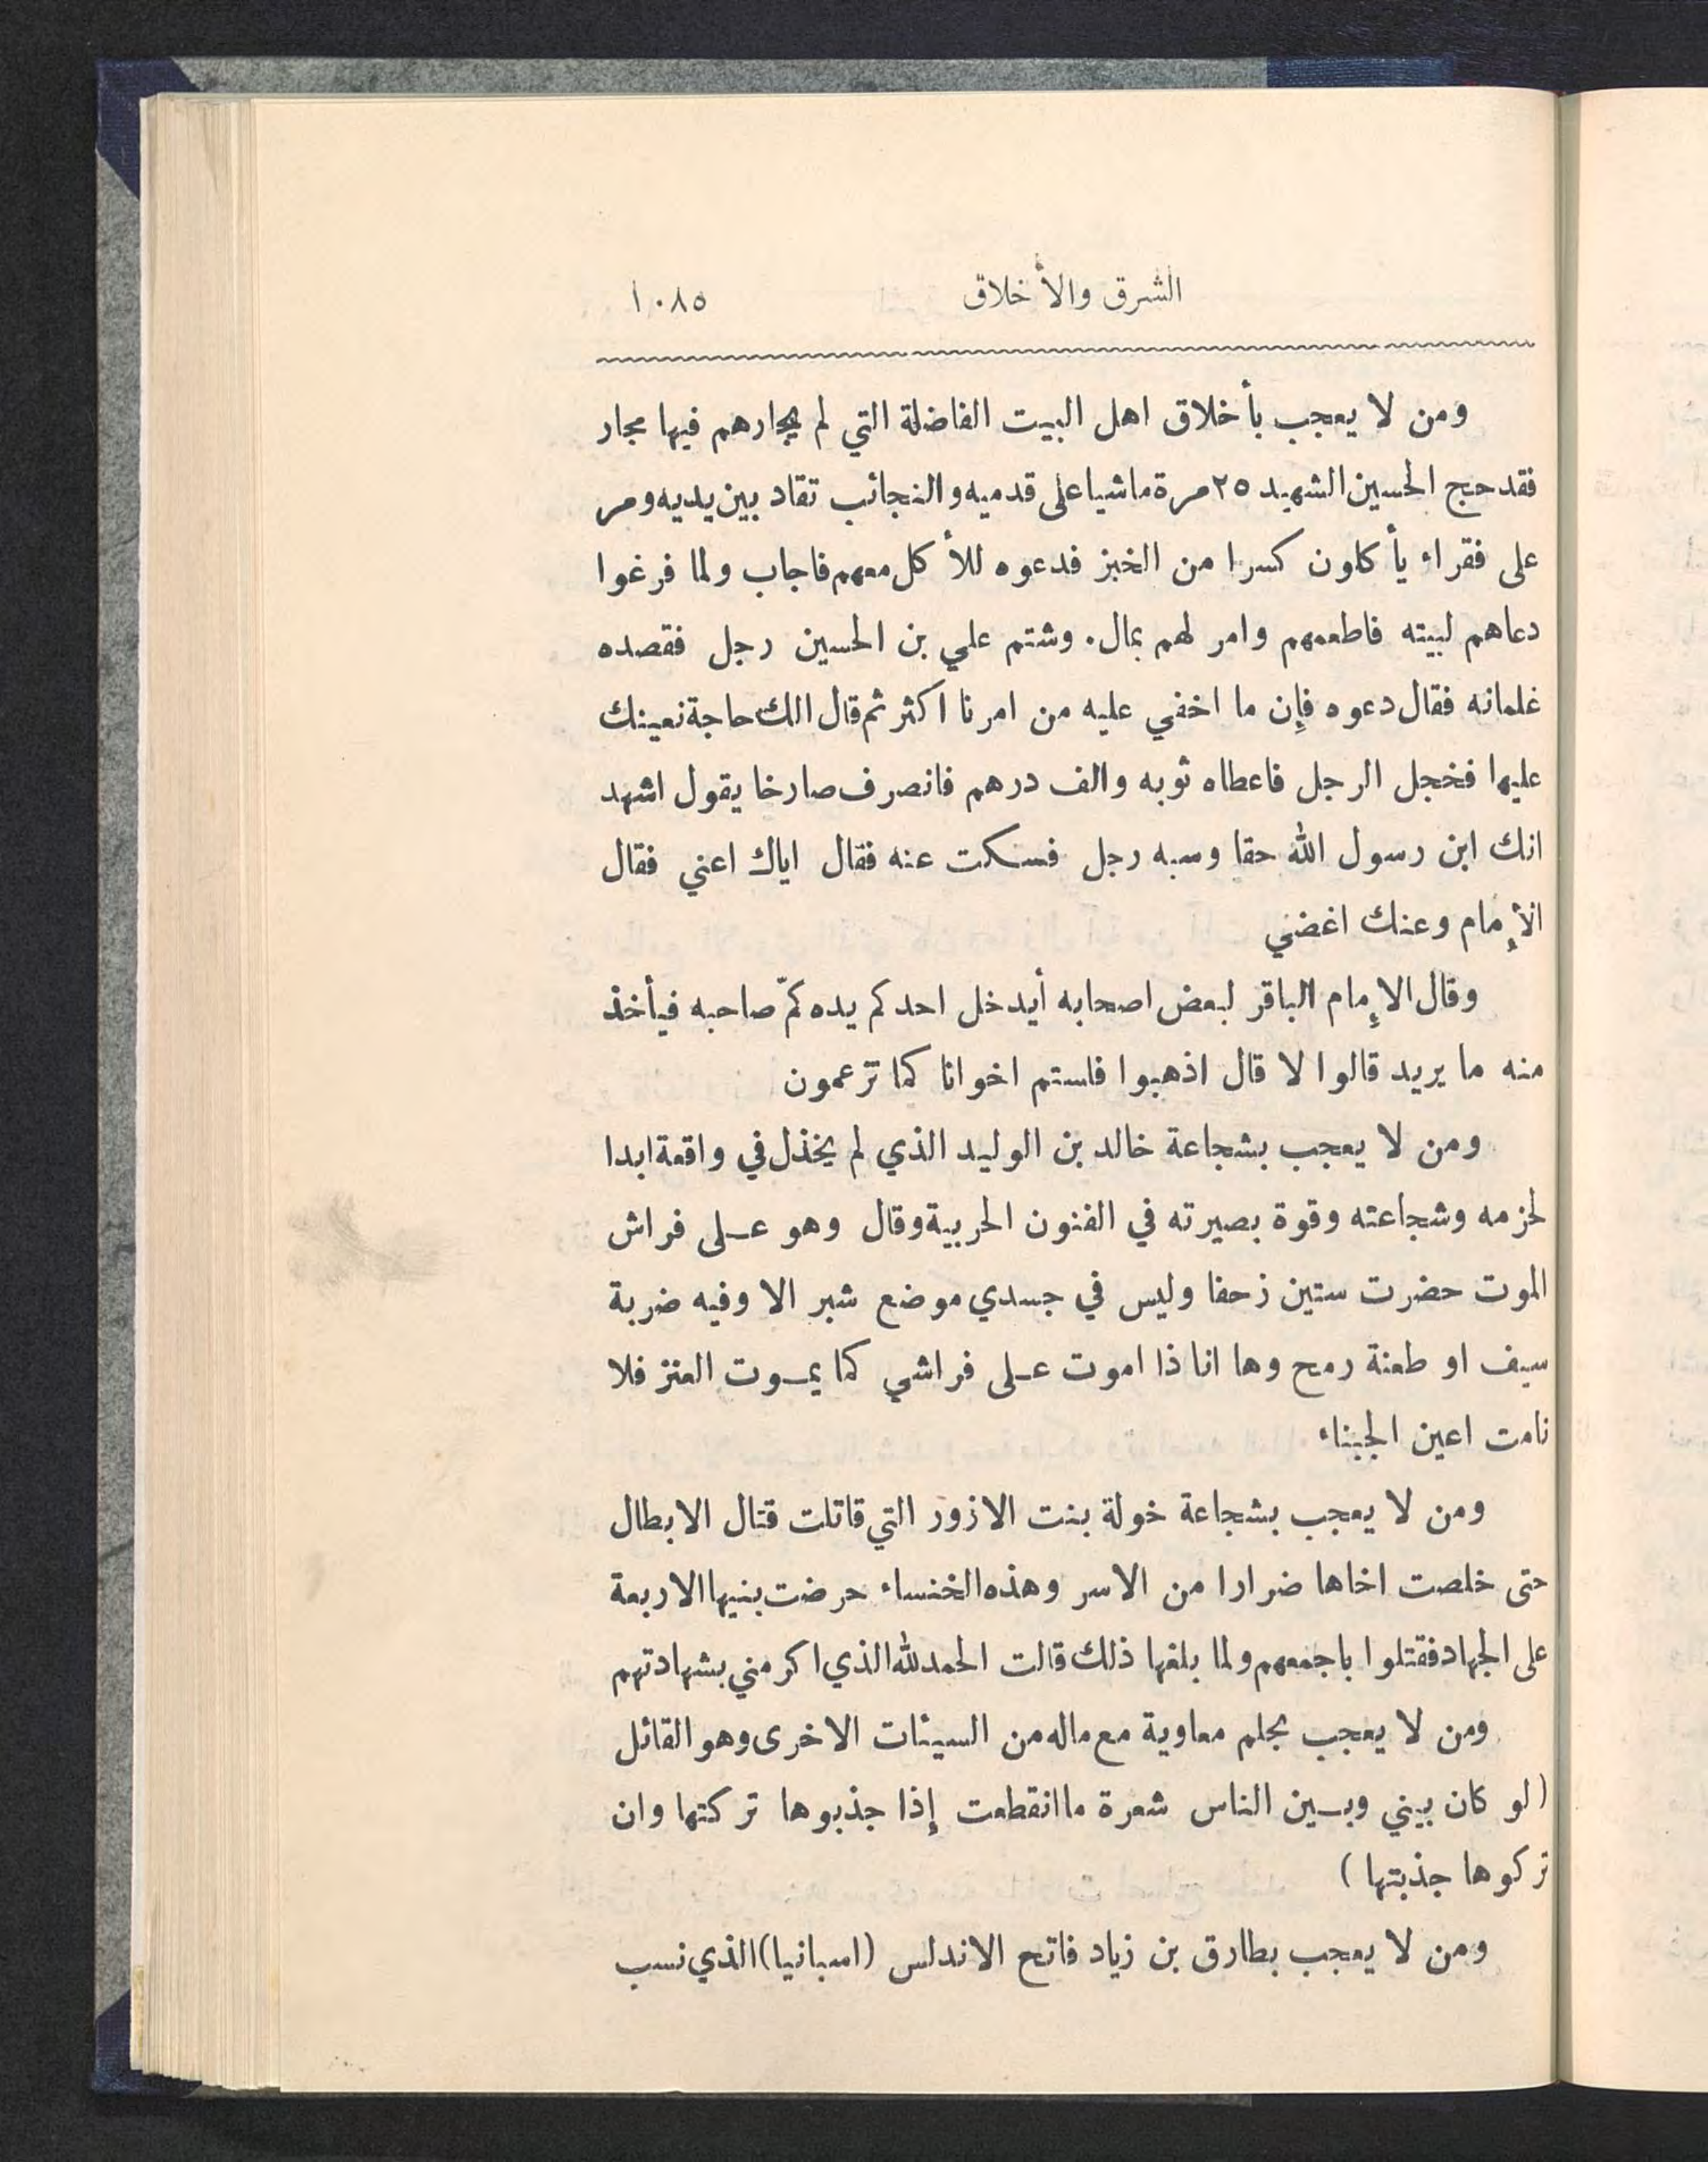 الشرق والأخلاق ١٠٨٥
ومن لا يعجب بأخلاق اهل البيت الفاضلة التي لم يجارهم فيها مجار
فقد حج الحسين الشهيد ٢٥ مرة ماشيا على قدميه والنجائب تقاد بين يديه ومر
على فقراء يأكلون كسرا من الخبز فدعوه للأكل معهم فاجاب ولما فرغوا
دعاهم لبيته فاطعمهم وامر لهم بمال. وشتم علي بن الحسين رجل فقصده
غلمانه فقال دعوه فإن ما اخفي عليه من امرنا اكثر ثم قال الك حاجة نعينك
عليها فخجل الرجل فاعطاه ثوبه والف درهم فانصرف صارخا يقول اشهد
انك ابن رسول الله حقا وسبه رجل فسكت عنه فقال اياك اعني فقال
الإمام وعنك اغضي
وقال الإمام الباقر لبعض اصحابه أيدخل احدكم يده كمّ صاحبه فيأخذ
منه ما يريد قالوا لا قال اذهبوا فلستم اخوانا كما تزعمون
ومن لا يعجب بشجاعة خالد بن الوليد الذي لم يخذل في واقعة ابدا
لحزمه وشجاعته وقوة بصيرته في الفنون الحربية وقال وهو عـلى فراش
الموت حضرت ستين زحفا وليس في جسدي موضع شبر الا وفيه ضربة
سيف او طعنة رمح وها انا ذا اموت عـلى فراشي كما يمـوت العنز فلا
نامت اعين الجبناء
ومن لا يعجب بشجاعة خولة بنت الازور التي قاتلت قتال الابطال
حتى خلصت اخاها ضرارا من الاسر وهذه الخنساء حرضت بنيها الاربعة
على الجهاد فقتلوا باجمعهم ولما بلغها ذلك قالت الحمد لله الذي اكرمني بشهادتهم
ومن لا يعجب بحلم معاوية مع ماله من السيئات الاخرى وهو القائل
(لو كان بيني وبـين الناس شعرة ما انقطعت إذا جذبوها تركتها وان
تركوها جذبتها)
ومن لا يعجب بطارق بن زياد فاتح الاندلس (اسبانيا) الذي نسب